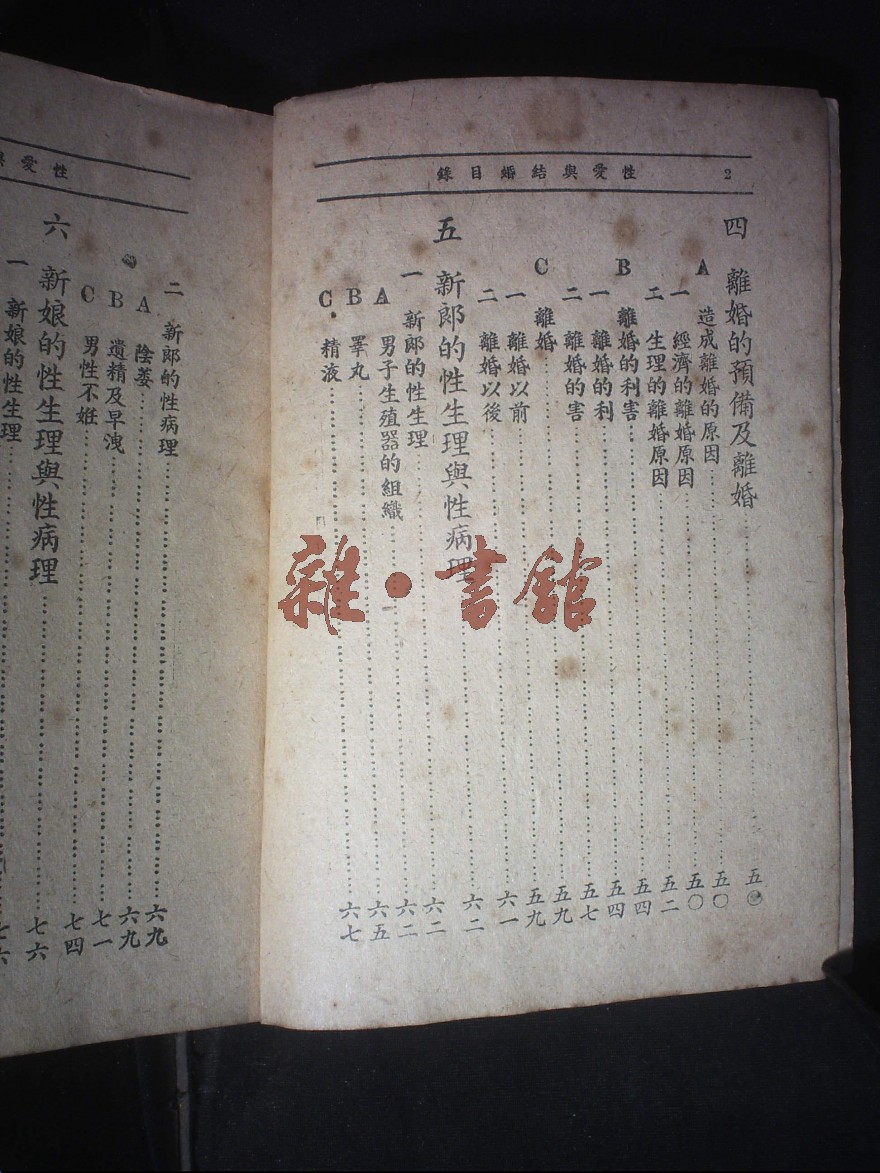 2 性愛與結婚目錄
四 離婚的預備及離婚……五〇
A 造成離婚的原因……五〇
一 經濟的離婚原因……五〇
二 生理的離婚原因……五二
B 離婚的利害……五四
一 離婚的利……五四
二 離婚的害……五七
C 離婚……五九
一 離婚以前……五九
二 離婚以後……六一
五 新郎的性生理與性病理……六二
一 新郎的性生理……六二
A 男子生殖器的組織……六二
B 睪丸……六五
C 精液……六七
性愛與
二 新郎的性病理……六九
A 陰萎……六九
B 遺精及早洩……七一
C 男性不姙……七四
六 新娘的性生理與性病理……七六
一 新娘的性生理……七六
雜·書館